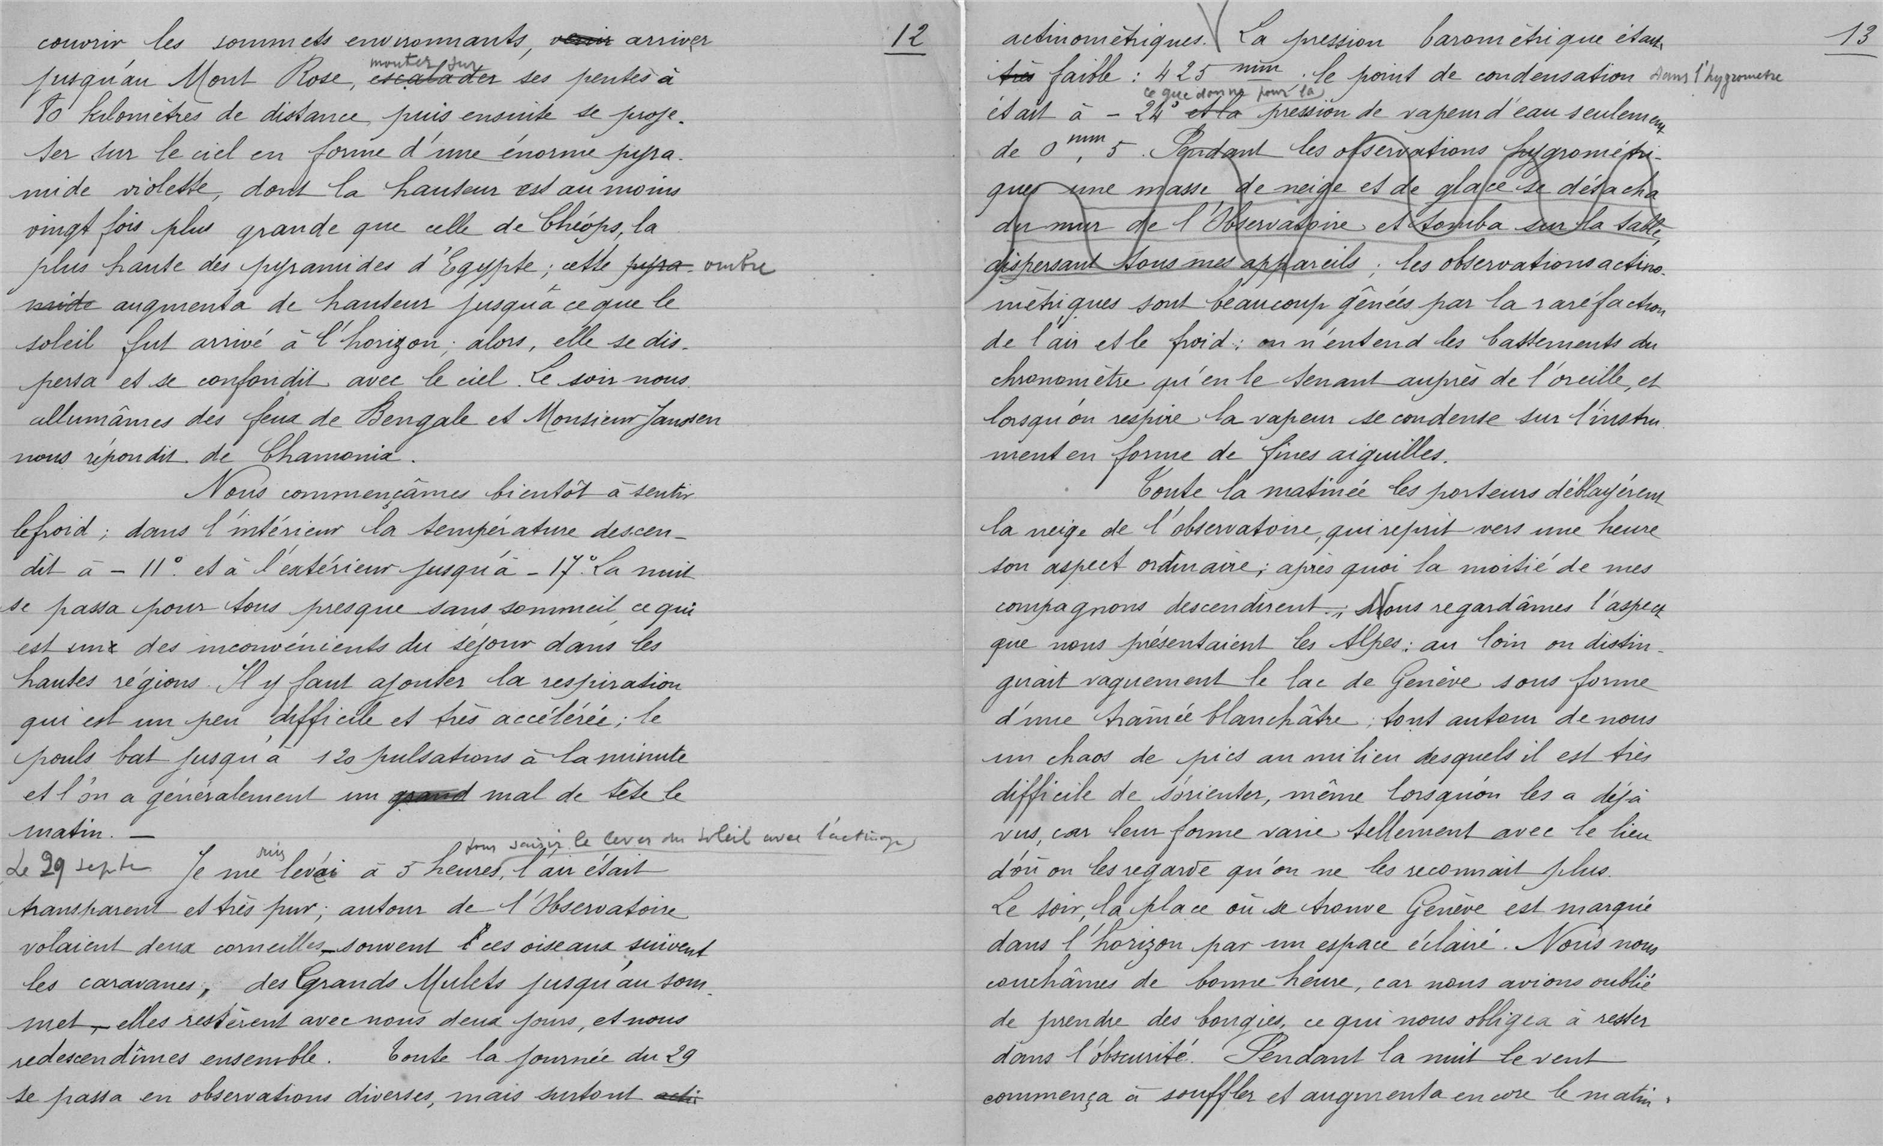 12
couvrir les sommets environnants, venir arriver
monter sur
jusqu'au Mont Rose, escalader ses pentes à
80 kilomètres de distance, puis ensuite se proje-
ter sur le ciel en forme d'une énorme pyra-
mide violette, dont la hauteur est au moins
vingt fois plus grande que celle de Chéops, la
plus haute des pyramides d'Egypte ; cette pyra- ombre
mide augmenta de hauteur jusqu'à ce que le
soleil fut arrivé à l'horizon ; alors, elle se dis-
persa et se confondit avec le ciel. Le soir nous
allumâmes des feux de Bengale et Monsieur Janssen
nous répondit de Chamonix.
Nous commençâmes bientôt à sentir
le froid ; dans l'intérieur la température descen-
dit à - 11°. et à l'extérieur jusqu'à - 17°. La nuit
se passa pour tous presque sans sommeil, ce qui
est une des inconvénients du séjour dans les
hautes régions. Il y faut ajouter la respiration
qui est un peu difficile et très accélérée ; le
pouls bat jusqu'à 120 pulsations à la minute
et l'on a généralement un grand mal de tête le
matin. —
pour saisir le lever du soleil avec l'actinop
suis
Le 29 septe Je me levai à 5 heures, l'air était
transparent et très pur ; autour de l'Observatoire
volaient deux corneilles — souvent ces oiseaux suivent
les caravanes, des Grands Mulets jusqu'au som-
met, — elles restèrent avec nous deux jours, et nous
redescendîmes ensemble. Toute la journée du 29
se passa en observations diverses, mais surtout acti
13
actinométriques. La pression barométrique étant
très faible : 425 mm ; le point de condensation dans l'hygromètre
ce que donne pour la
était à - 24° et la pression de vapeur d'eau seulement
de 0 mm, 5. Pendant les observations hygrométri-
ques une masse de neige et de glace se détacha
du mur de l'Observatoire et tomba sur la table,
dispersant tous mes appareils ; les observations actino-
métriques sont beaucoup gênées par la raréfaction
de l'air et le froid ; on n'entend les battements du
chronomètre qu'en le tenant auprès de l'oreille, et
lorsqu'on respire la vapeur se condense sur l'instru-
ment en forme de fines aiguilles.
Toute la matinée les porteurs déblayèrent
la neige de l'observatoire, qui reprit vers une heure
son aspect ordinaire ; après quoi la moitié de mes
compagnons descendirent. Nous regardâmes l'aspect
que nous présentaient les Alpes : au loin on distin-
guait vaguement le lac de Genève sous forme
d'une traînée blanchâtre ; tout autour de nous
un chaos de pics au milieu desquels il est très
difficile de s'orienter, même lorsqu'on les a déjà
vus, car leur forme varie tellement avec le lieu
d'où on les regarde qu'on ne les reconnait plus.
Le soir, la place où se trouve Genève est marqué
dans l'horizon par un espace éclairé. Nous nous
couchâmes de bonne heure, car nous avions oublié
de prendre des bougies, ce qui nous obligea à rester
dans l'obscurité. Pendant la nuit le vent
commença à souffler et augmenta encore le matin.